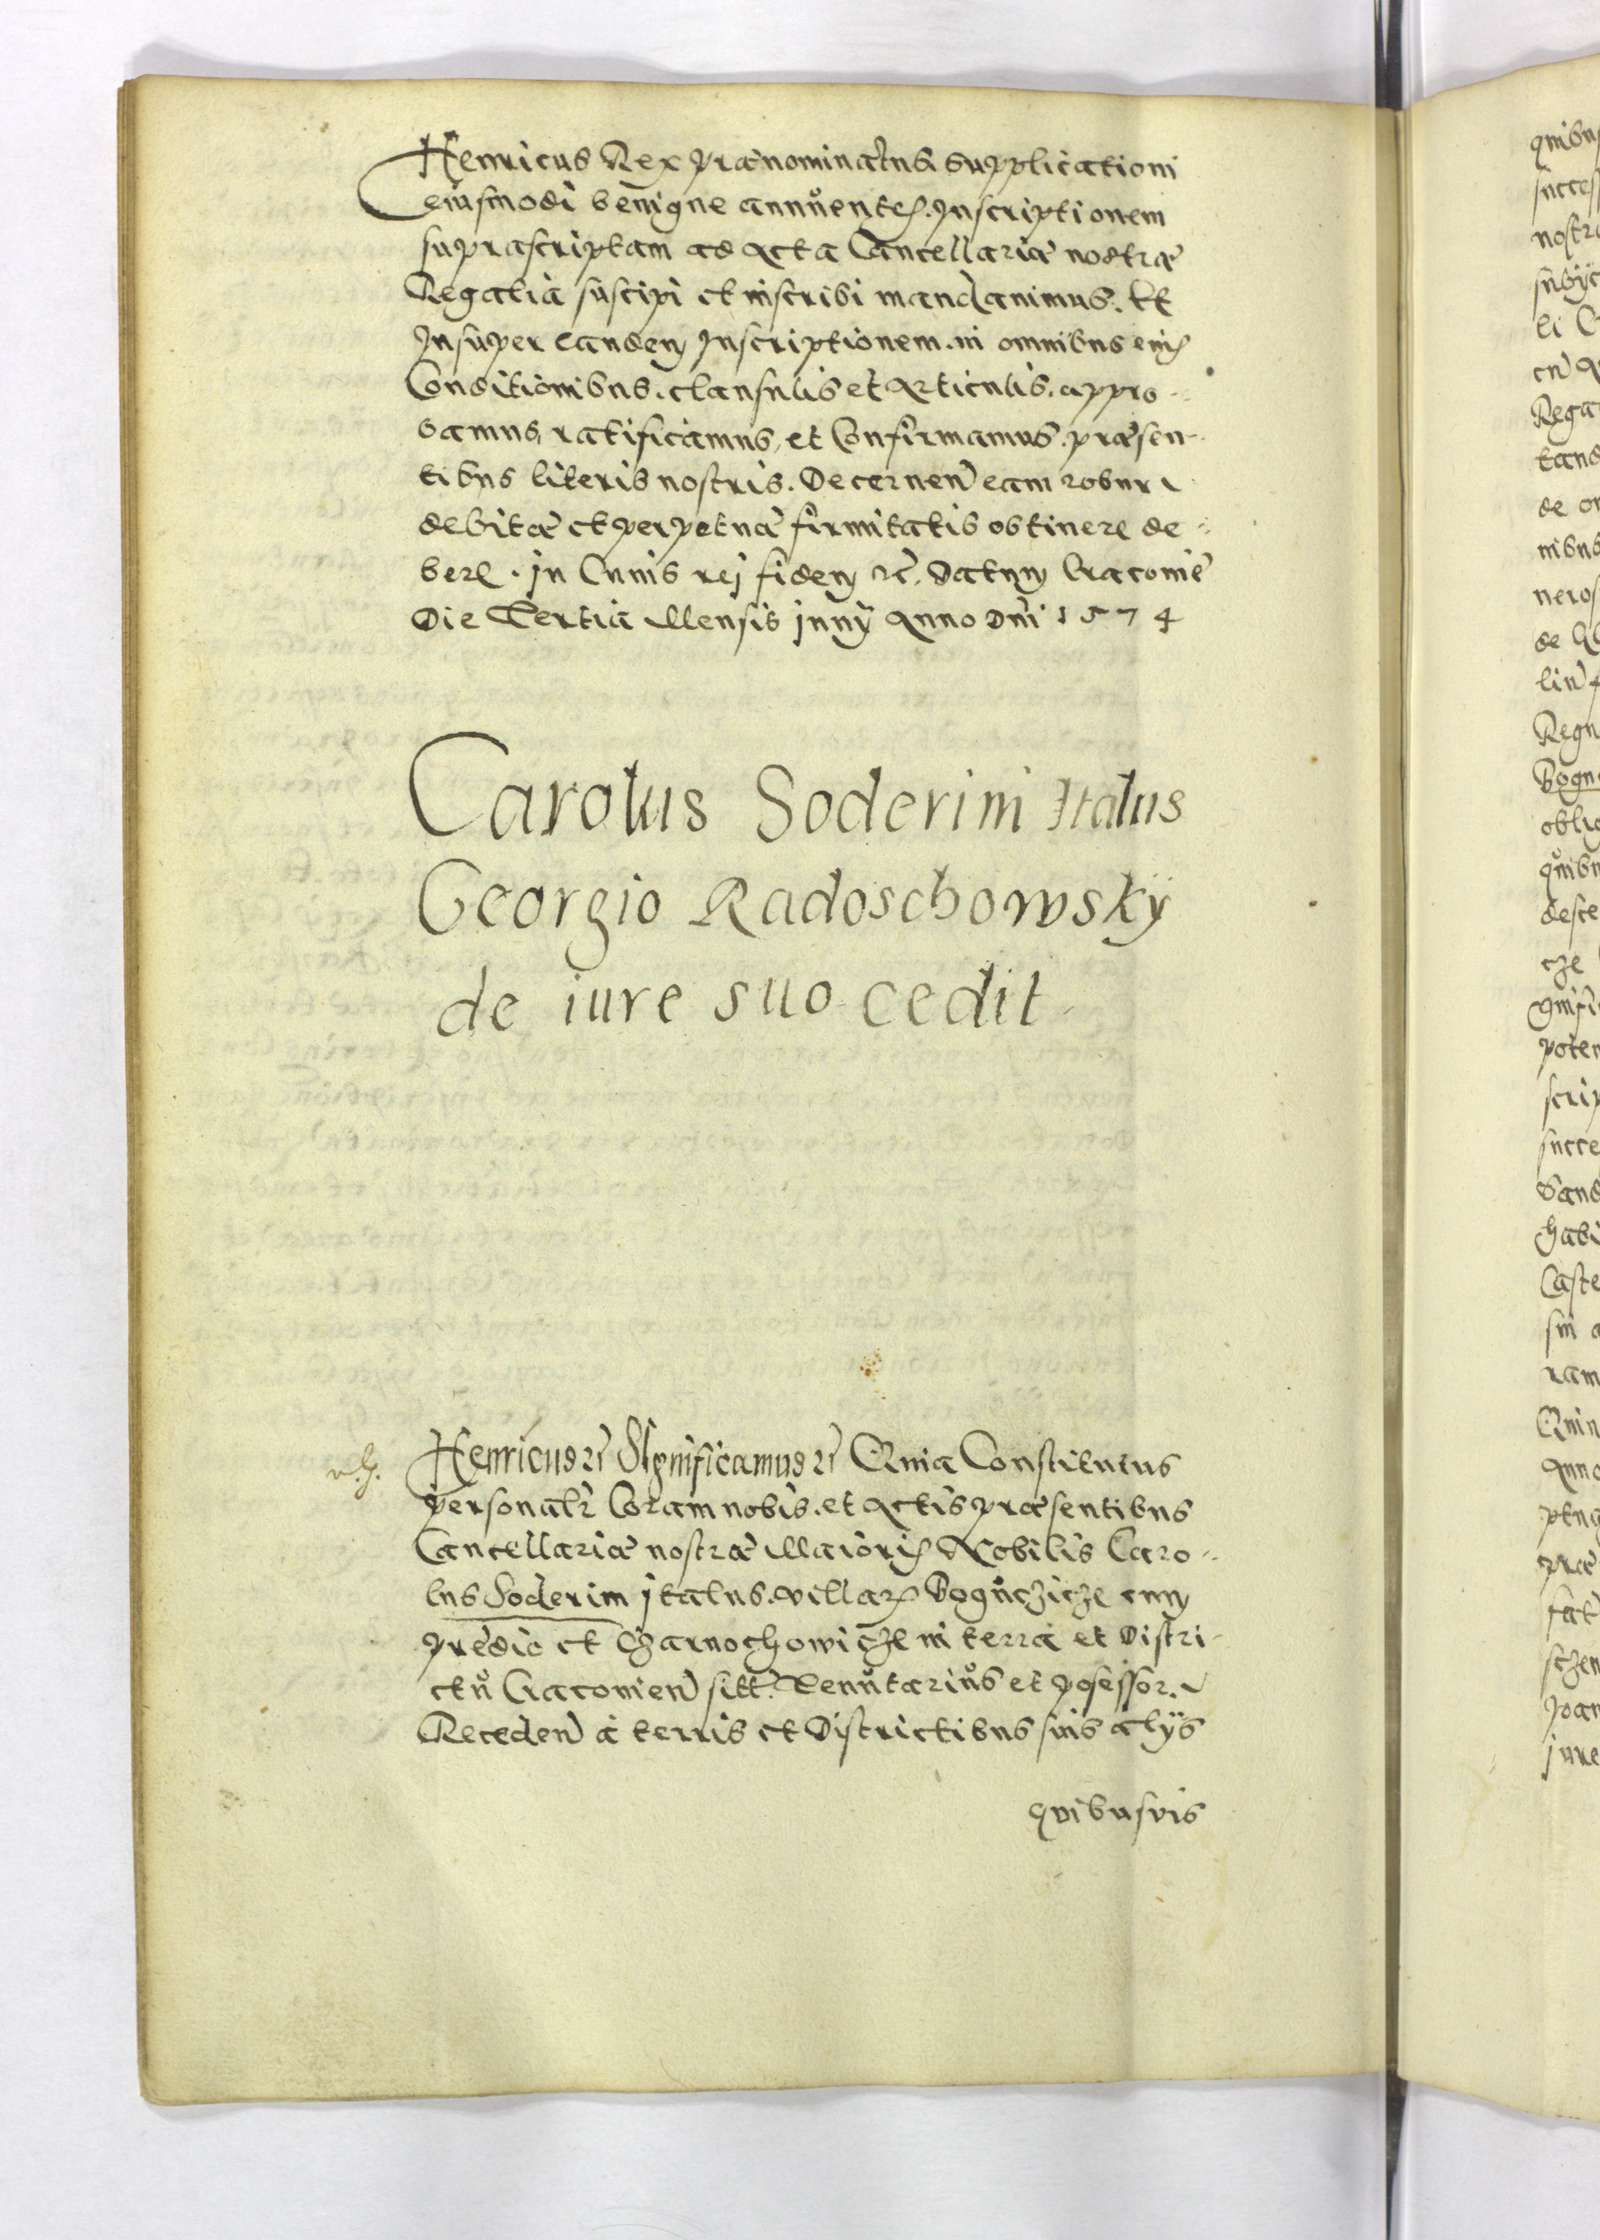 Henricus Rex prænominatus supplicationi
eiusmodi benigne annuentes. Inscriptionem
suprascriptam ad Acta Cancellariæ nostræ
Regalia suscipi et inscribi mandauimus. Et
Insuper eandem Inscriptionem. in omnibus eius
Conditionibus. clausulis et Articulis. appro-
bamus, ratificamus, et Confirmamus. præsen-
tibus literis nostris. Decernen eam robur
debitæ et perpetuæ firmitatis obtinere de-
bere. in Cuius rej fidem &c. Datum Cracoviæ
Die Tertia Mensis junij Anno Dni 1574
Carolus Soderini Italus
Georgio Radoschowsky
de iure suo cedit
Henricus &c Significamus &c Quia Constitutus
personalr Coram nobis. et Actis præsentibus
Cancellariæ nostræ Maioris Nobilis Caro-
lus Soderini jtalus. villar Boguczicze cum
prædio et Czarnochowicze in terra et Distri-
ctu Cracovien sitt. Tenutarius et posessor.
Receden a terris et Districtibus suis alijs
quibusvis
quibus
success
nostra
subijc
li
en
Rega
tand
de
nibus
neros
de
lin
Regn
Bogu
oblig
quibu
desce
cze
gnifi
poten
scrip
succe
dand
habi
Caste
sui
ram
Quin
Anno
ptum
præ
fat
schen
Joan
jure